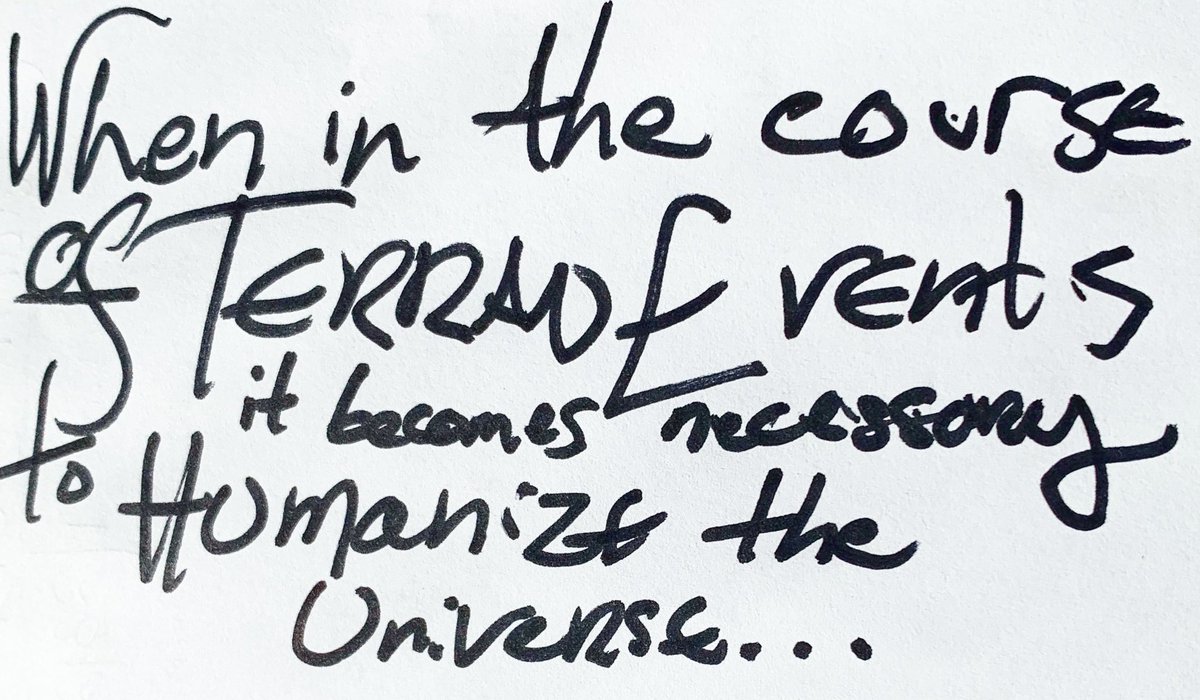 When in the course
of TERRAN Events
it becomes necessary
to Humanize the
Universe...